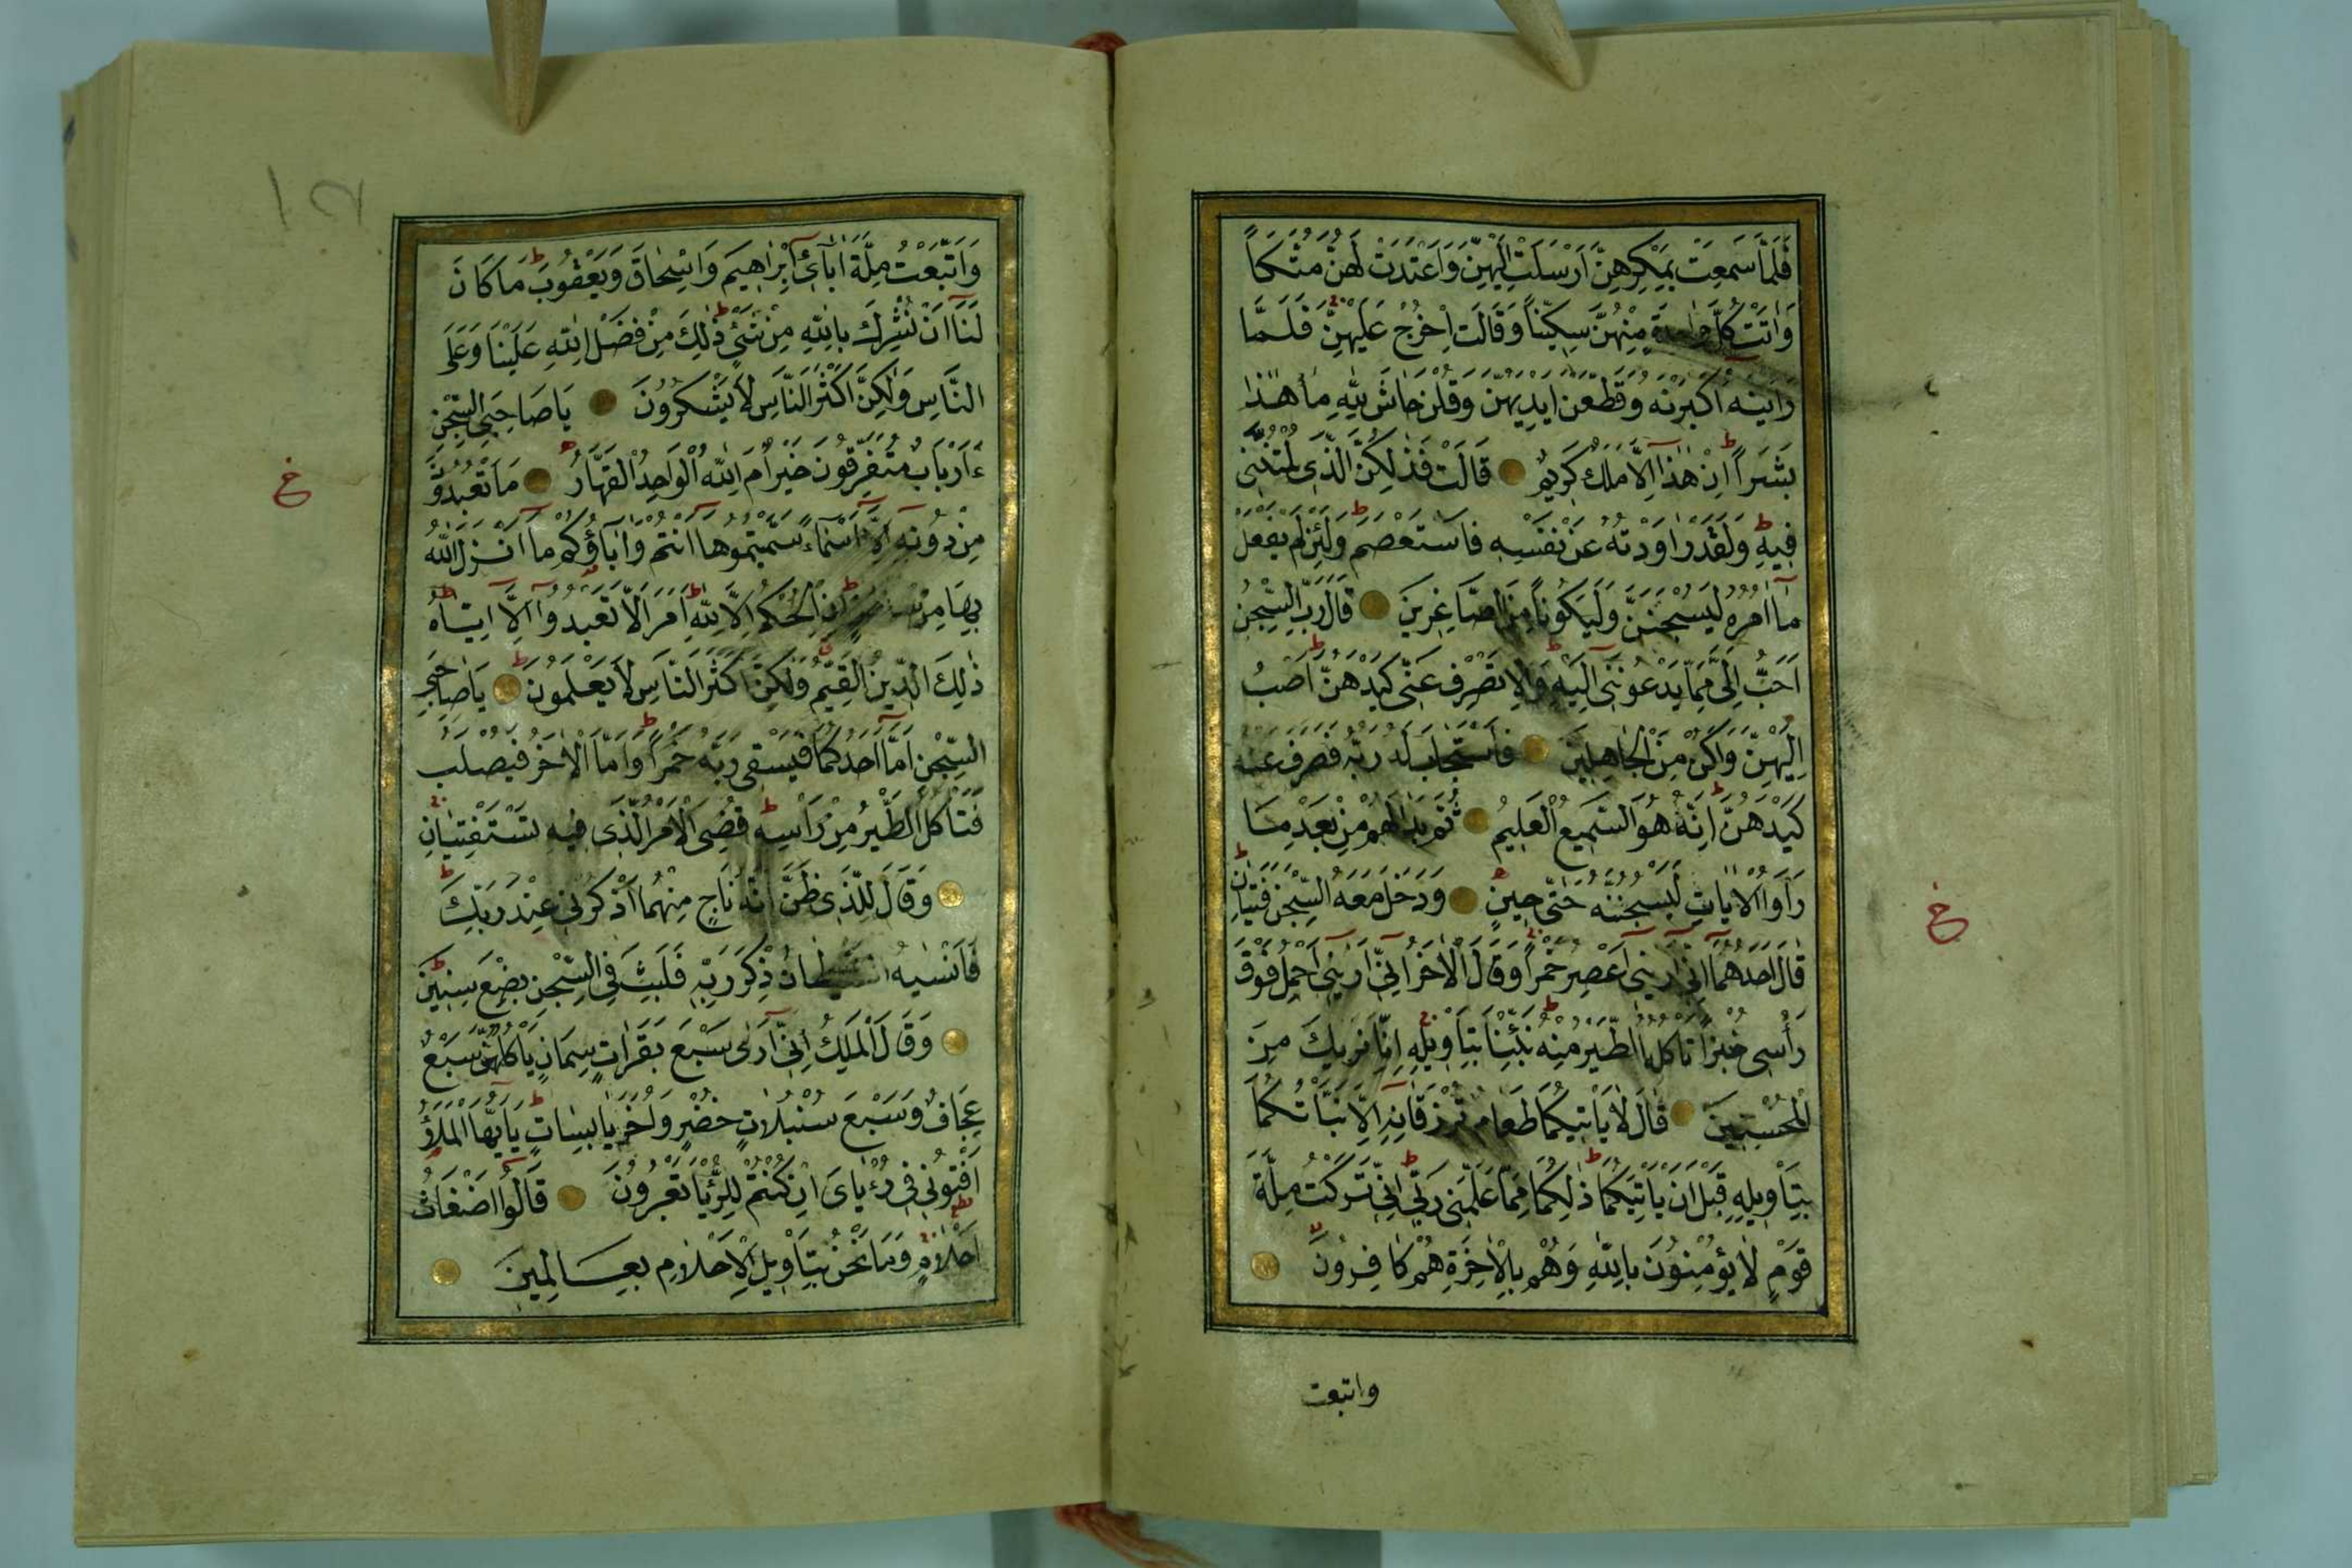 فَلَمَّا سَمِعَتْ بِمَكْرِهِنَّ اَرْسَلَتْ اِلَيْهِنَّ وَاَعْتَدَتْ لَهُنَّ مُتَّكَـًٔا
وَاٰتَتْ كُلَّ وَاحِدَةٍ مِنْهُنَّ سِكِّينًا وَقَالَتِ اخْرُجْ عَلَيْهِنَّ فَلَمَّا
رَاَيْنَهُ اَكْبَرْنَهُ وَقَطَّعْنَ اَيْدِيَهُنَّ وَقُلْنَ حَاشَ لِلّٰهِ مَا هٰذَا
بَشَرًا اِنْ هٰذَا اِلَّا مَلَكٌ كَرِيمٌ قَالَتْ فَذٰلِكُنَّ الَّذِى لُمْتُنَّنِى
فِيهِ وَلَقَدْ رَاوَدْتُهُ عَنْ نَفْسِهِ فَاسْتَعْصَمَ وَلَئِنْ لَمْ يَفْعَلْ
مَا اٰمُرُهُ لَيُسْجَنَنَّ وَلَيَكُونًا مِنَ الصَّاغِرِينَ قَالَ رَبِّ السِّجْنُ
اَحَبُّ اِلَىَّ مِمَّا يَدْعُونَنِى اِلَيْهِ وَاِلَّا تَصْرِفْ عَنِّى كَيْدَهُنَّ اَصْبُ
اِلَيْهِنَّ وَاَكُنْ مِنَ الْجَاهِلِينَ فَاسْتَجَابَ لَهُ رَبُّهُ فَصَرَفَ عَنْهُ
كَيْدَهُنَّ اِنَّهُ هُوَ السَّمِيعُ الْعَلِيمُ ثُمَّ بَدَا لَهُمْ مِنْ بَعْدِ مَا
رَاَوُا الْاٰيَاتِ لَيَسْجُنُنَّهُ حَتّٰى حِينٍ وَدَخَلَ مَعَهُ السِّجْنَ فَتَيَانِ
قَالَ اَحَدُهُمَا اِنِّى اَرٰينِى اَعْصِرُ خَمْرًا وَقَالَ الْاٰخَرُ اِنِّى اَرٰينِى اَحْمِلُ فَوْقَ
رَأْسِى خُبْزًا تَأْكُلُ الطَّيْرُ مِنْهُ نَبِّئْنَا بِتَأْوِيلِهِ اِنَّا نَرٰيكَ مِنَ
الْمُحْسِنِينَ قَالَ لَا يَأْتِيكُمَا طَعَامٌ تُرْزَقَانِهِ اِلَّا نَبَّأْتُكُمَا
بِتَأْوِيلِهِ قَبْلَ اَنْ يَأْتِيَكُمَا ذٰلِكُمَا مِمَّا عَلَّمَنِى رَبِّى اِنِّى تَرَكْتُ مِلَّةَ
قَوْمٍ لَا يُؤْمِنُونَ بِاللّٰهِ وَهُمْ بِالْاٰخِرَةِ هُمْ كَافِرُونَ
واتبعت
خ
وَاتَّبَعْتُ مِلَّةَ اٰبَائِى اِبْرٰاهِيمَ وَاِسْحٰاقَ وَيَعْقُوبَ مَا كَانَ
لَنَا اَنْ نُشْرِكَ بِاللّٰهِ مِنْ شَىْءٍ ذٰلِكَ مِنْ فَضْلِ اللّٰهِ عَلَيْنَا وَعَلَى
النَّاسِ وَلٰكِنَّ اَكْثَرَ النَّاسِ لَا يَشْكُرُونَ يَا صَاحِبَىِ السِّجْنِ
ءَاَرْبَابٌ مُتَفَرِّقُونَ خَيْرٌ اَمِ اللّٰهُ الْوَاحِدُ الْقَهَّارُ مَا تَعْبُدُونَ
مِنْ دُونِهِ اِلَّا اَسْمَاءً سَمَّيْتُمُوهَا اَنْتُمْ وَاٰبَاؤُكُمْ مَا اَنْزَلَ اللّٰهُ
بِهَا مِنْ اِنِ الْحُكْمُ اِلَّا لِلّٰهِ اَمَرَ اَلَّا تَعْبُدُوا اِلَّا اِيَّاهُ
ذٰلِكَ الدِّينُ الْقَيِّمُ وَلٰكِنَّ اَكْثَرَ النَّاسِ لَا يَعْلَمُونَ يَا صَاحِبَىِ
السِّجْنِ اَمَّا اَحَدُكُمَا فَيَسْقِى رَبَّهُ خَمْرًا وَاَمَّا الْاٰخَرُ فَيُصْلَبُ
فَتَأْكُلُ الطَّيْرُ مِنْ رَأْسِهِ قُضِىَ الْاَمْرُ الَّذِى فِيهِ تَسْتَفْتِيَانِ
وَقَالَ لِلَّذِى ظَنَّ اَنَّهُ نَاجٍ مِنْهُمَا اذْكُرْنِى عِنْدَ رَبِّكَ
فَاَنْسٰيهُ الشَّيْطَانُ ذِكْرَ رَبِّهِ فَلَبِثَ فِى السِّجْنِ بِضْعَ سِنِينَ
وَقَالَ الْمَلِكُ اِنِّى اَرٰى سَبْعَ بَقَرَاتٍ سِمَانٍ يَأْكُلُهُنَّ سَبْعٌ
عِجَافٌ وَسَبْعَ سُنْبُلَاتٍ خُضْرٍ وَاُخَرَ يَابِسَاتٍ يَا اَيُّهَا الْمَلَأُ
اَفْتُونِى فِى رُءْيَاىَ اِنْ كُنْتُمْ لِلرُّءْيَا تَعْبُرُونَ قَالُوا اَضْغَاثُ
اَحْلَامٍ وَمَا نَحْنُ بِتَأْوِيلِ الْاَحْلَامِ بِعَالِمِينَ
خ